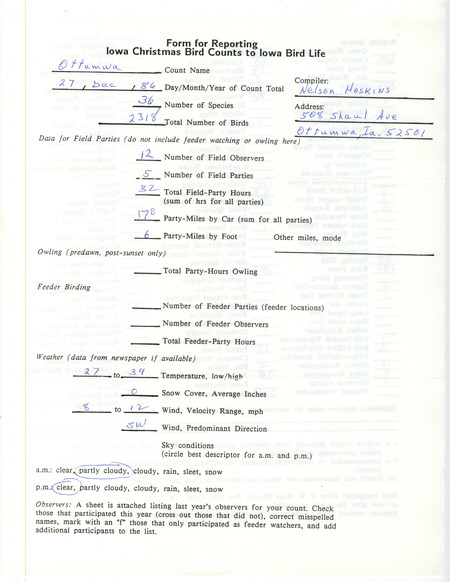 Form for Reporting
Iowa Christmas Bird Counts to Iowa Bird Life
Ottumwa Count Name
27, Dec, 86 Day/Month/Year of Count Total
Compiler:
Nelson Hoskins
36 Number of Species
Address:
508 Shaul Ave
2318 Total Number of Birds
Ottumwa, Ia. 52501
Data for Field Parties (do not include feeder watching or owling here)
12 Number of Field Observers
5 Number of Field Parties
32 Total Field-Party Hours
(sum of hrs for all parties)
170 Party-Miles by Car (sum for all parties)
6 Party-Miles by Foot Other miles, mode
Owling (predawn, post-sunset only)
Total Party-Hours Owling
Feeder Birding
Number of Feeder Parties (feeder locations)
Number of Feeder Observers
Total Feeder-Party Hours
Weather (data from newspaper if available)
27 to 39 Temperature, low/high
0 Snow Cover, Average Inches
8 to 12 Wind, Velocity Range, mph
SW Wind, Predominant Direction
Sky conditions
(circle best descriptor for a.m. and p.m.)
a.m.: clear, partly cloudy, cloudy, rain, sleet, snow
p.m.: clear, partly cloudy, cloudy, rain, sleet, snow
Observers: A sheet is attached listing last year's observers for your count. Check
those that participated this year (cross out those that did not), correct misspelled
names, mark with an "f" those that only participated as feeder watchers, and add
additional participants to the list.